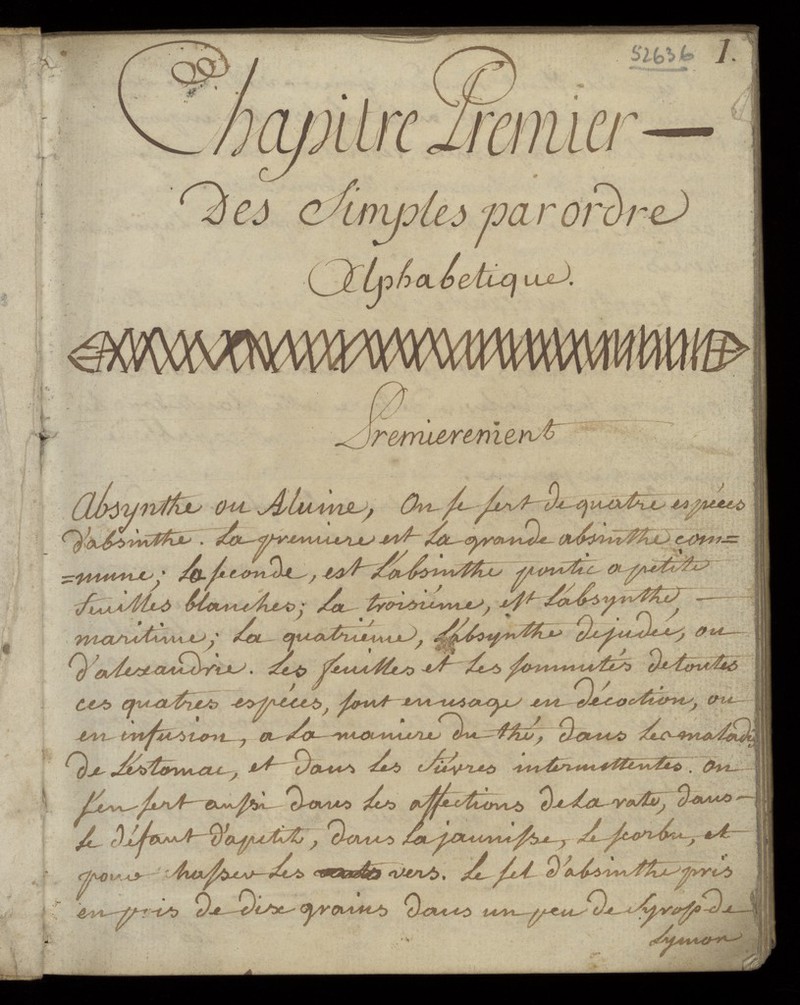 52636 1.
Chapitre Premier —
Des Simples par ordre
Alphabetique.
Premierement
Absynthe ou Aluine, On se sert de quatre espéces
d'absinthe. La premiere est La grande absinthe com=
=mune; La seconde, est L'absinthe pontic a petite
feuilles blanches; La troisiéme, est L'absynthe, —
maritime; La quatriéme, L'absynthe de judée, ou
d'alexandrie. Les feuilles et Les sommités de toutes
ces quatres espéces, sont en usage en décoction, ou
en infusion, a La maniere du thé, dans Les maladies
de L'éstomac, et dans Les fiévres intermittentes. on
s'en sert aussi dans Les affections de La rate, dans —
Le défaut d'apetit, dans La jaunisse, Le scorbu, et
pour chasser Les vers. Le sel d'absinthe pris
en pois de dix grains dans un peu de Syrop de
Lymon